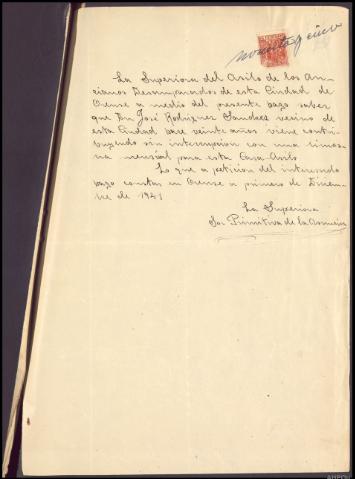 noventa y cinco
La Superiora del Asilo de los An-
cianos Desamparados de esta Ciudad de
Orense a medio del presente hago saber
que Don José Rodriguez vecino de
esta Ciudad hace veinte años viene contri-
buyendo sin interrupcion con una limos-
na mensual para esta Casa-Asilo
Lo que a peticion del interesado
hago constar en Orense a primero de Diciem-
bre de 1941
La Superiora
Sor Primitiva de la Asuncion